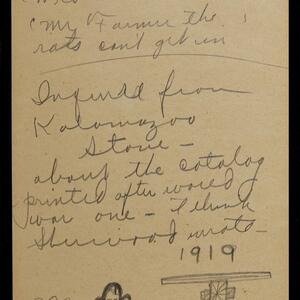 "Mr Farmer the
rats can't get in
Inquired from
Kalamazoo
Stove —
about the catalog
printed after world
war one — I think
Sherwood wrote —
1919